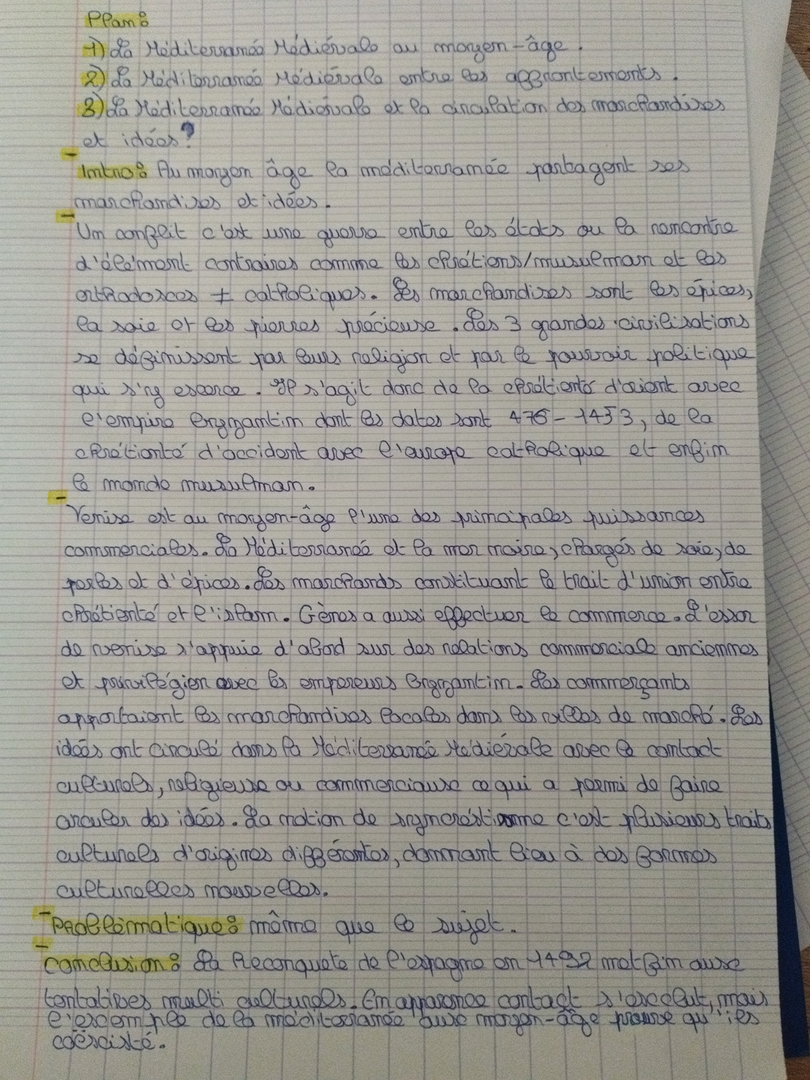 Plan :
1) La Méditerranée Médiévale au moyen-âge.
2) La Méditerranée Médiévale entre les affrontements.
3) La Méditerranée Médiévale et la circulation des marchandises
et idées ?
- Intro : Au moyen âge la méditerranée partagent ses
marchandises et idées.
- Un conflit c'est une guerre entre les états ou la rencontre
d'élément contraires comme les chrétiens/musulman et les
orthadoxces ≠ catholiques. Les marchandises sont les épices,
la soie et les pierres précieuse. Les 3 grandes civilisations
se définissent par leurs religion et par le pouvoir politique
qui s'ny escerce. Il s'agit donc de la chrétienté d'orient avec
l'empire byzantin dont les dates sont 476-1453, de la
chrétienté d'occident avec l'europe catholique et enfin
le monde musulman.
- Venise est au moyen-âge l'une des principales puissances
commerciales. La Méditerranée et la mer noire, chargés de soie, de
perles et d'épices. Les marchands constituant le trait d'union entre
chrétienté et l'islam. Gènes a aussi effectuer le commerce. L'essor
de venise s'appuie d'abord sur des relations commerciale anciennes
et privilégien avec les empereurs byzantin. Les commerçants
apportaient les marchandises locales dans les villes de marché. Les
idées ont circulé dans la Méditerranée Médiévale avec le contact
culturels, religieuse ou commerciause ce qui a permi de faire
circuler des idées. La notion de syncrétisme c'est plusieurs traits
culturels d'origines différentes, donnant lieu à des formes
culturelles nouvelles.
- Problématique : même que le sujet.
- Conclusion : La Reconquete de l'espagne en 1492 met fin ause
tentatives multi culturels. En apparence contact s'esclut, mais
l'escemple de la méditerranée ause moyen-âge prouve qu'ils
coescisté.